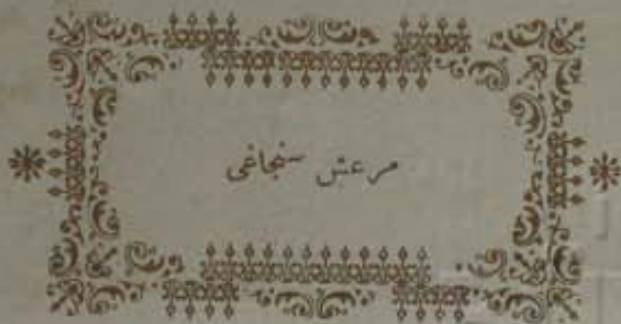 مرعش سنجاغى